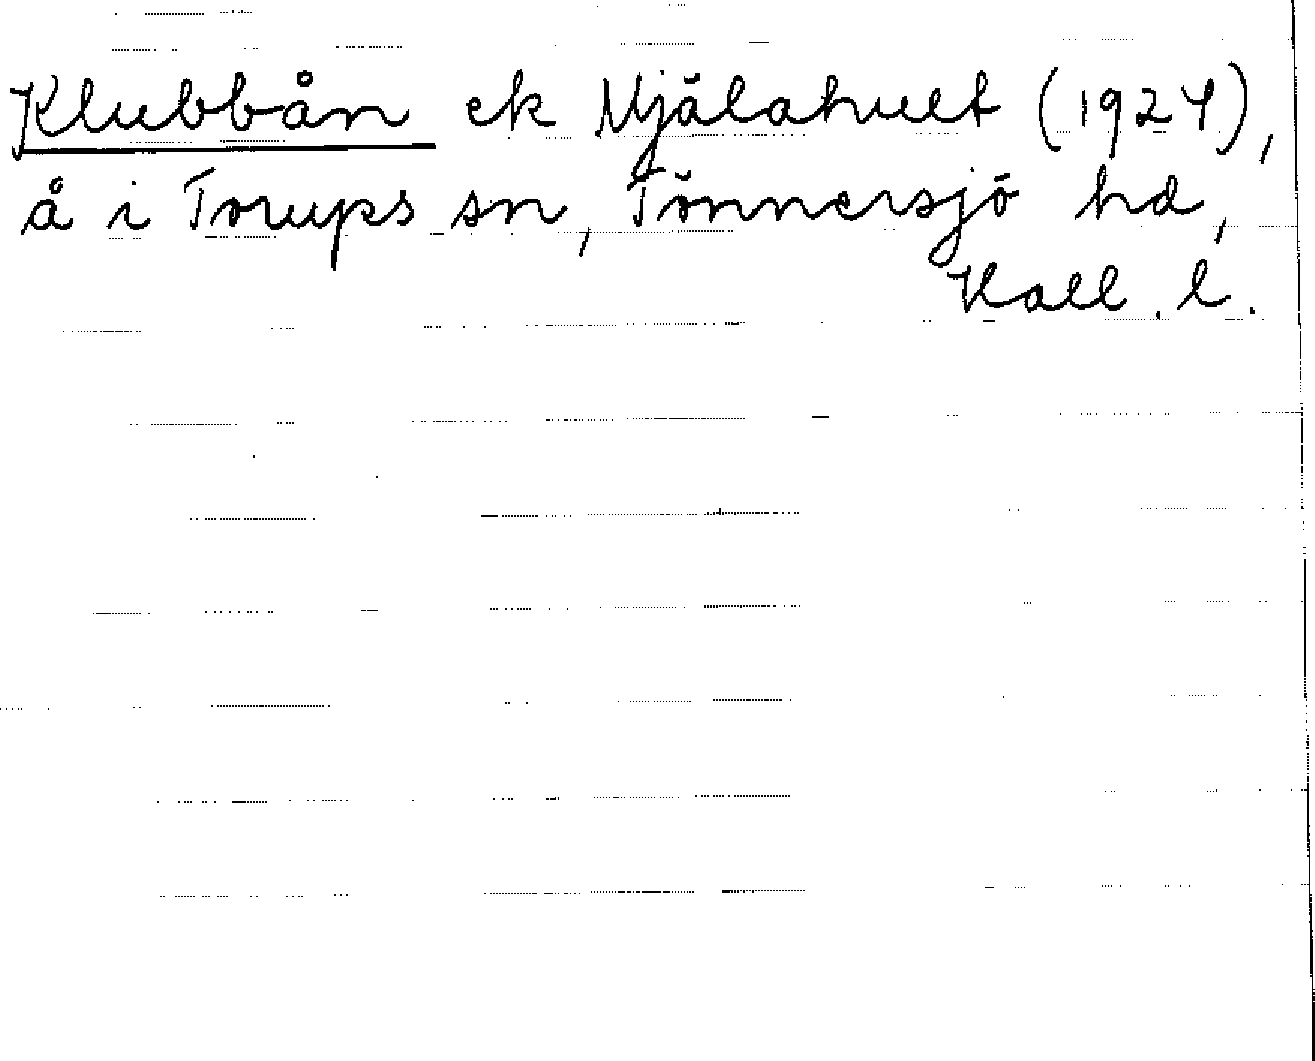 Klubbån ek Mjälahult (1924),
å i Torups sn, Tönnersjö hd,
Hall. l.